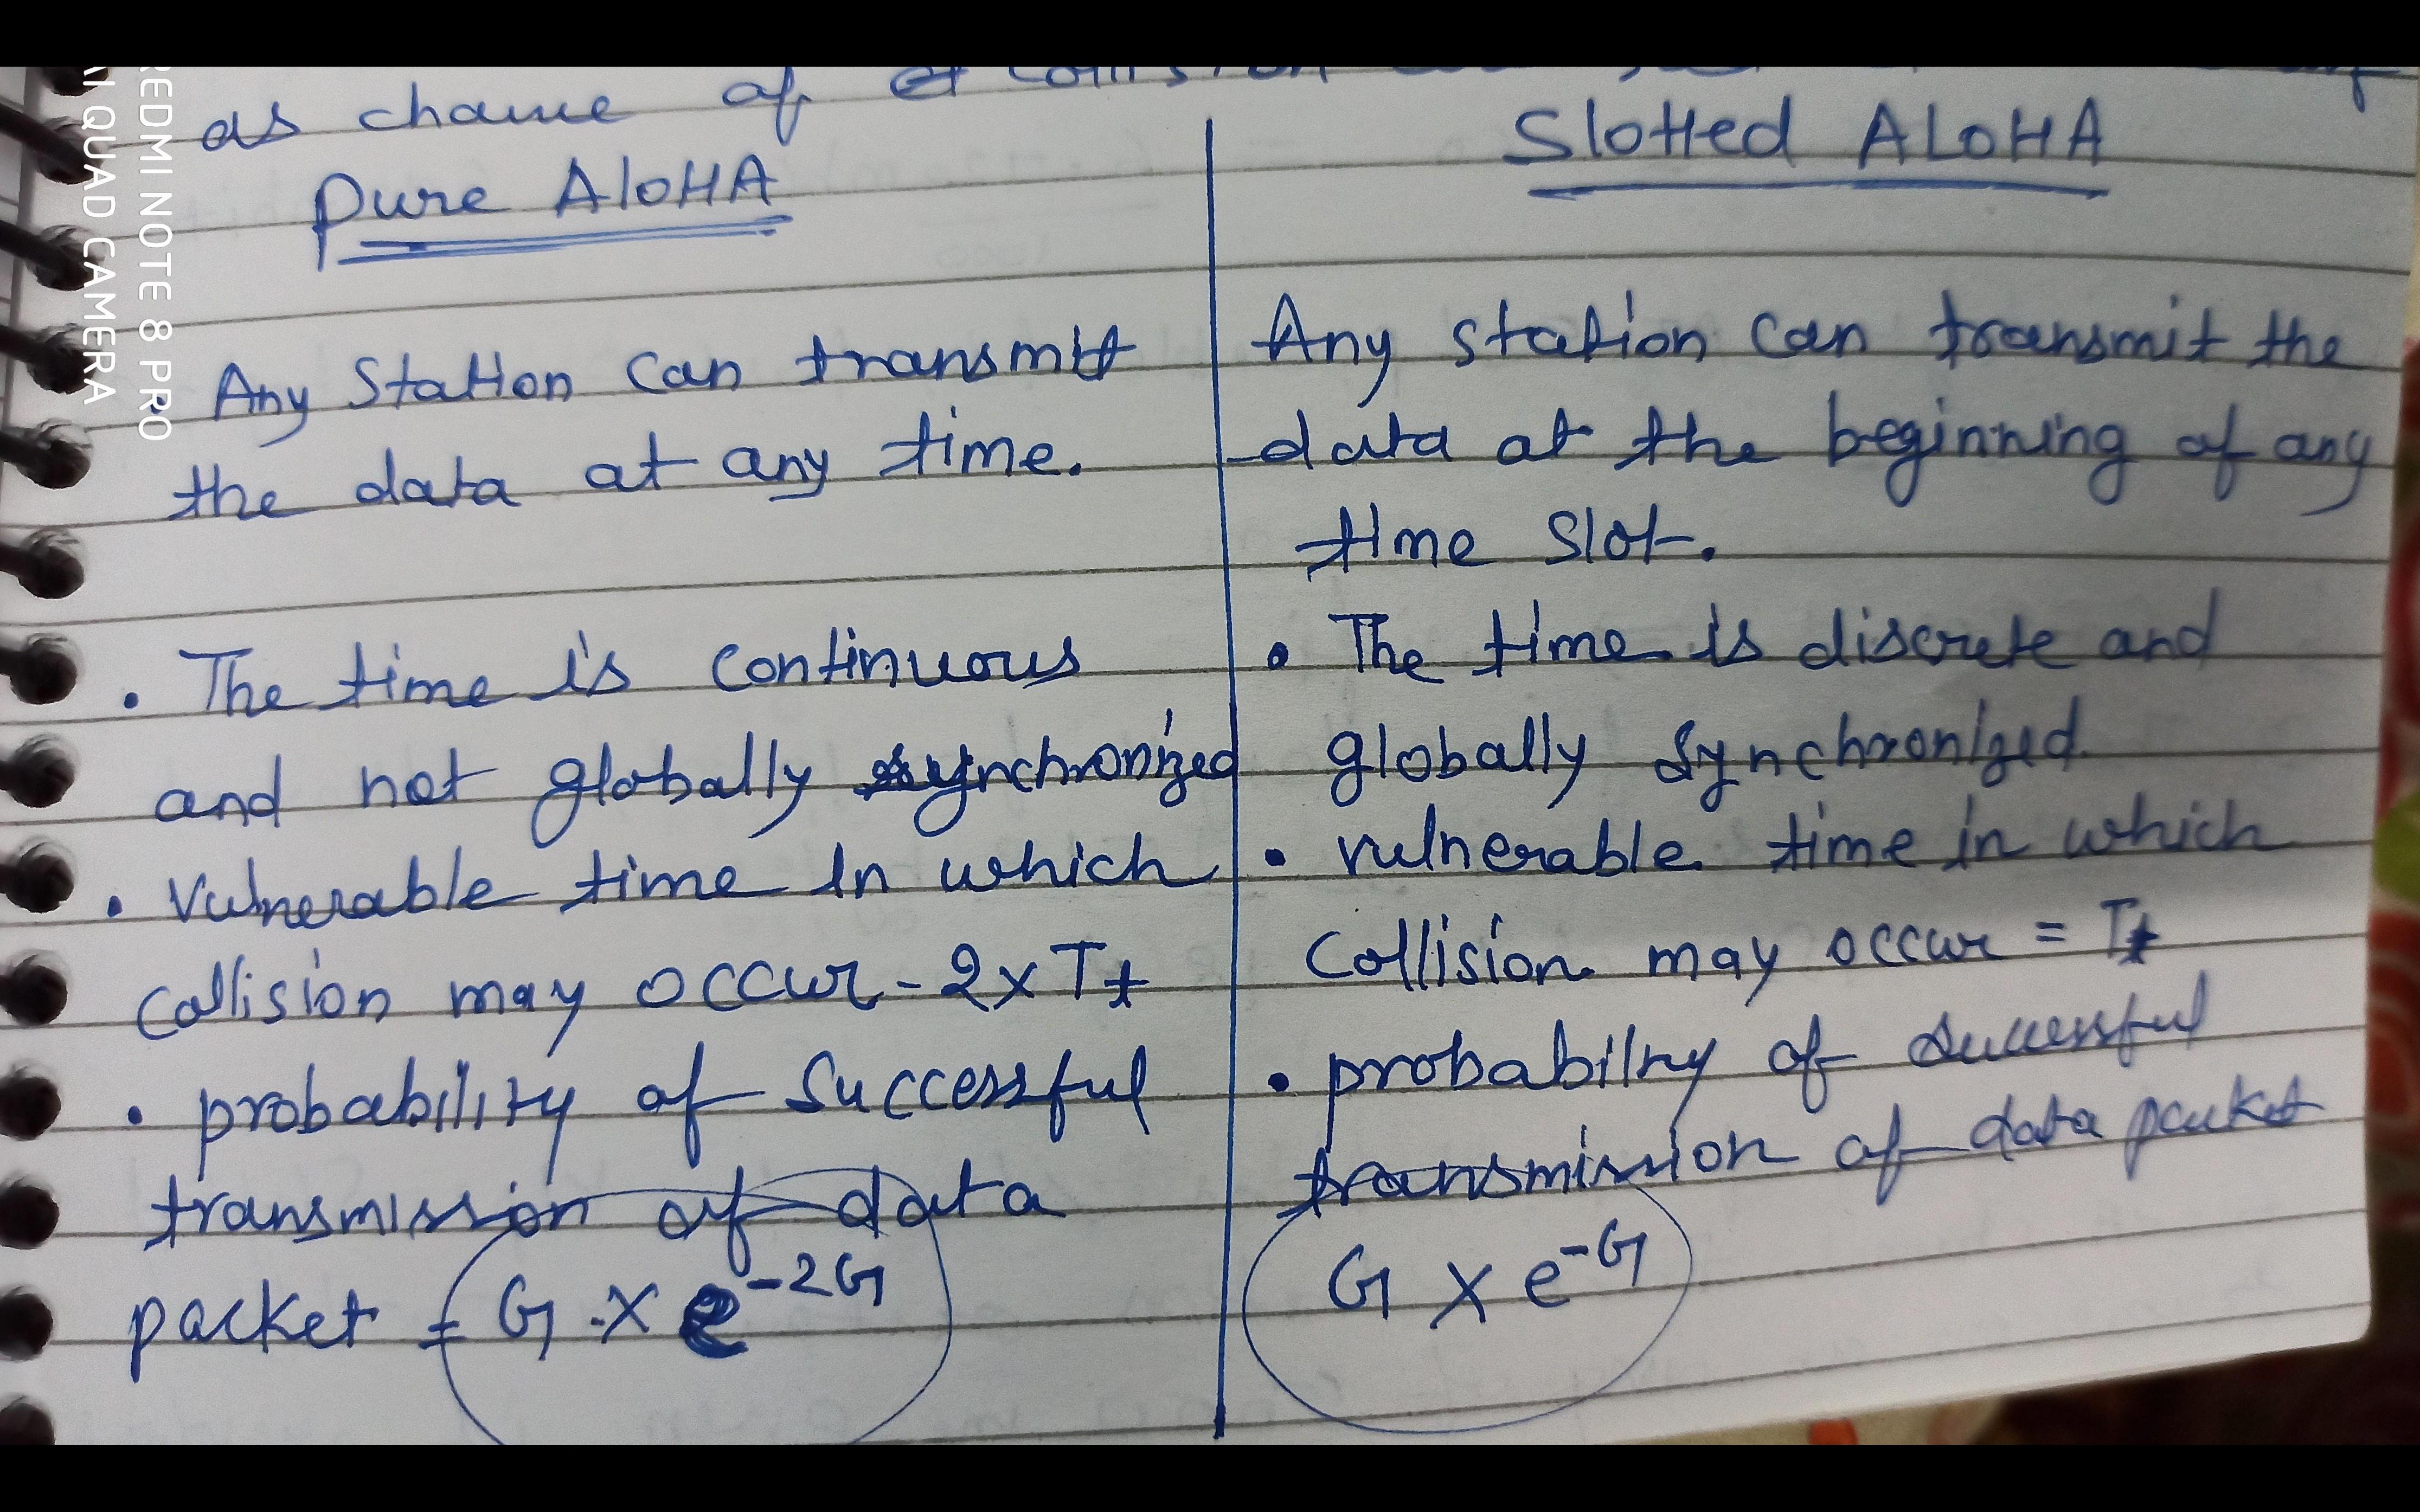 as chance of collision
Pure AloHA
Any Station Can transmit
the data at any time.
. The time is continuous
and not globally synchronized
• Vulnerable time In which
Collision may occur - 2 x Tt
• probability of Successful
transmission of data
packet = G . X e^-2G
Slotted ALOHA
Any station can transmit the
data at the beginning of any
time Slot.
• The time is discrete and
globally Synchronized.
• vulnerable time in which
Collision may occur = Tt
• probability of successful
transmission of data packet
G X e^-G
REDMI NOTE 8 PRO
AI QUAD CAMERA